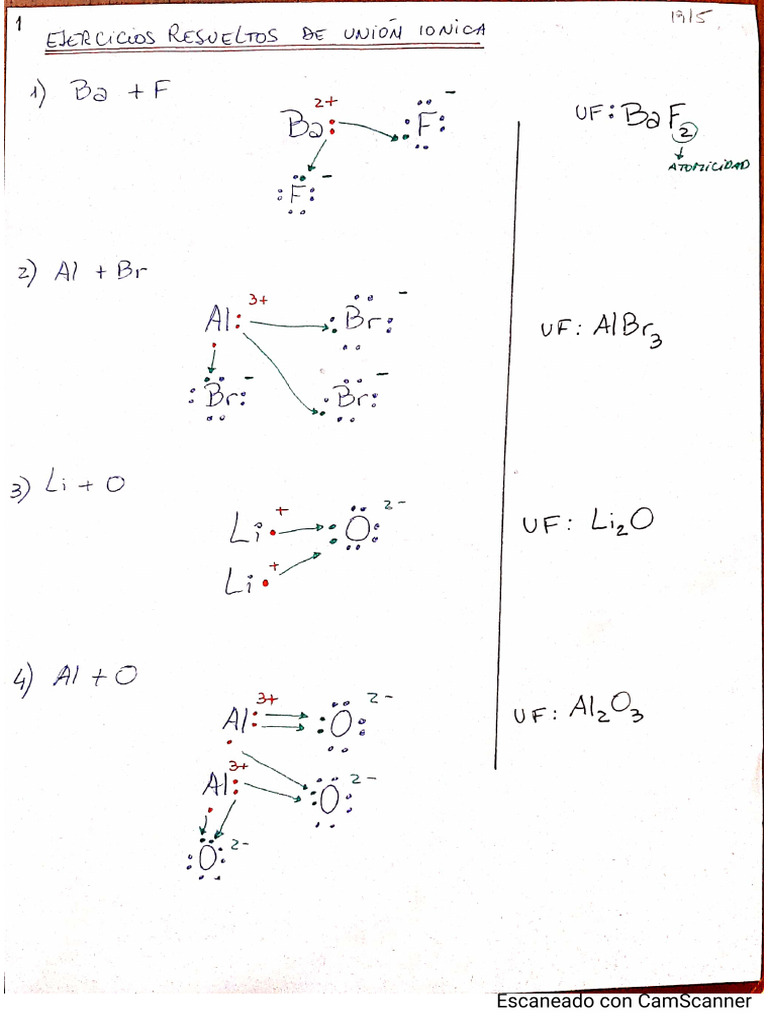 1
19/5
EJERCICIOS RESUELTOS DE UNIÓN IONICA
1) Ba + F
Ba 2+ F -
F -
UF: BaF2
ATOMICIDAD
2) Al + Br
Al 3+ Br -
Br - Br -
UF: AlBr3
3) Li + O
Li + O 2-
Li +
UF: Li2O
4) Al + O
Al 3+ O 2-
Al 3+ O 2-
O 2-
UF: Al2O3
Escaneado con CamScanner